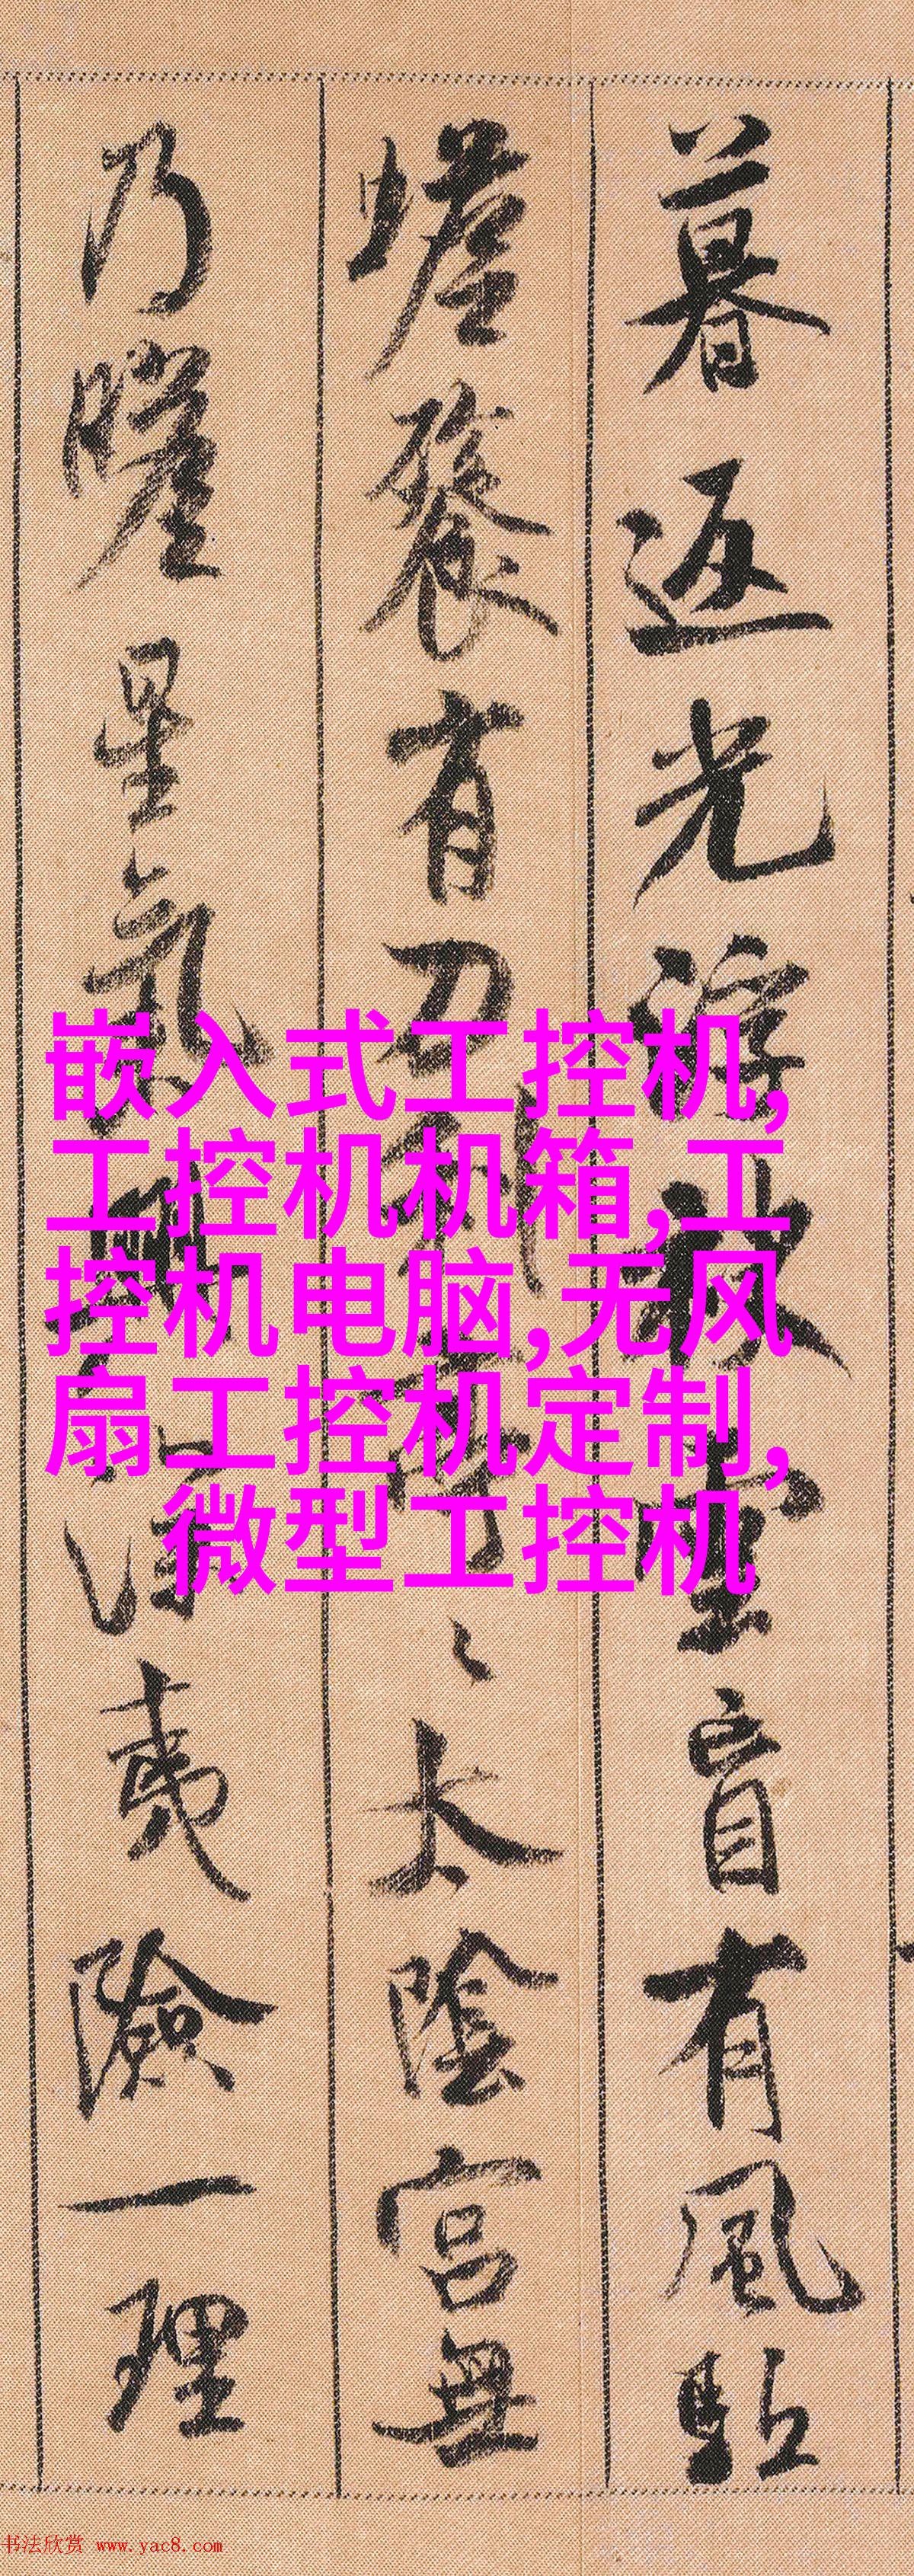 暮返光浮秋盲有風
有刀太陰宮無
乃星氣夷險一理
嵌入式工控机,
工控机机箱,工
控机电脑,无风
扇工控机定制,
微型工控机
书法欣赏 www.yac8.com